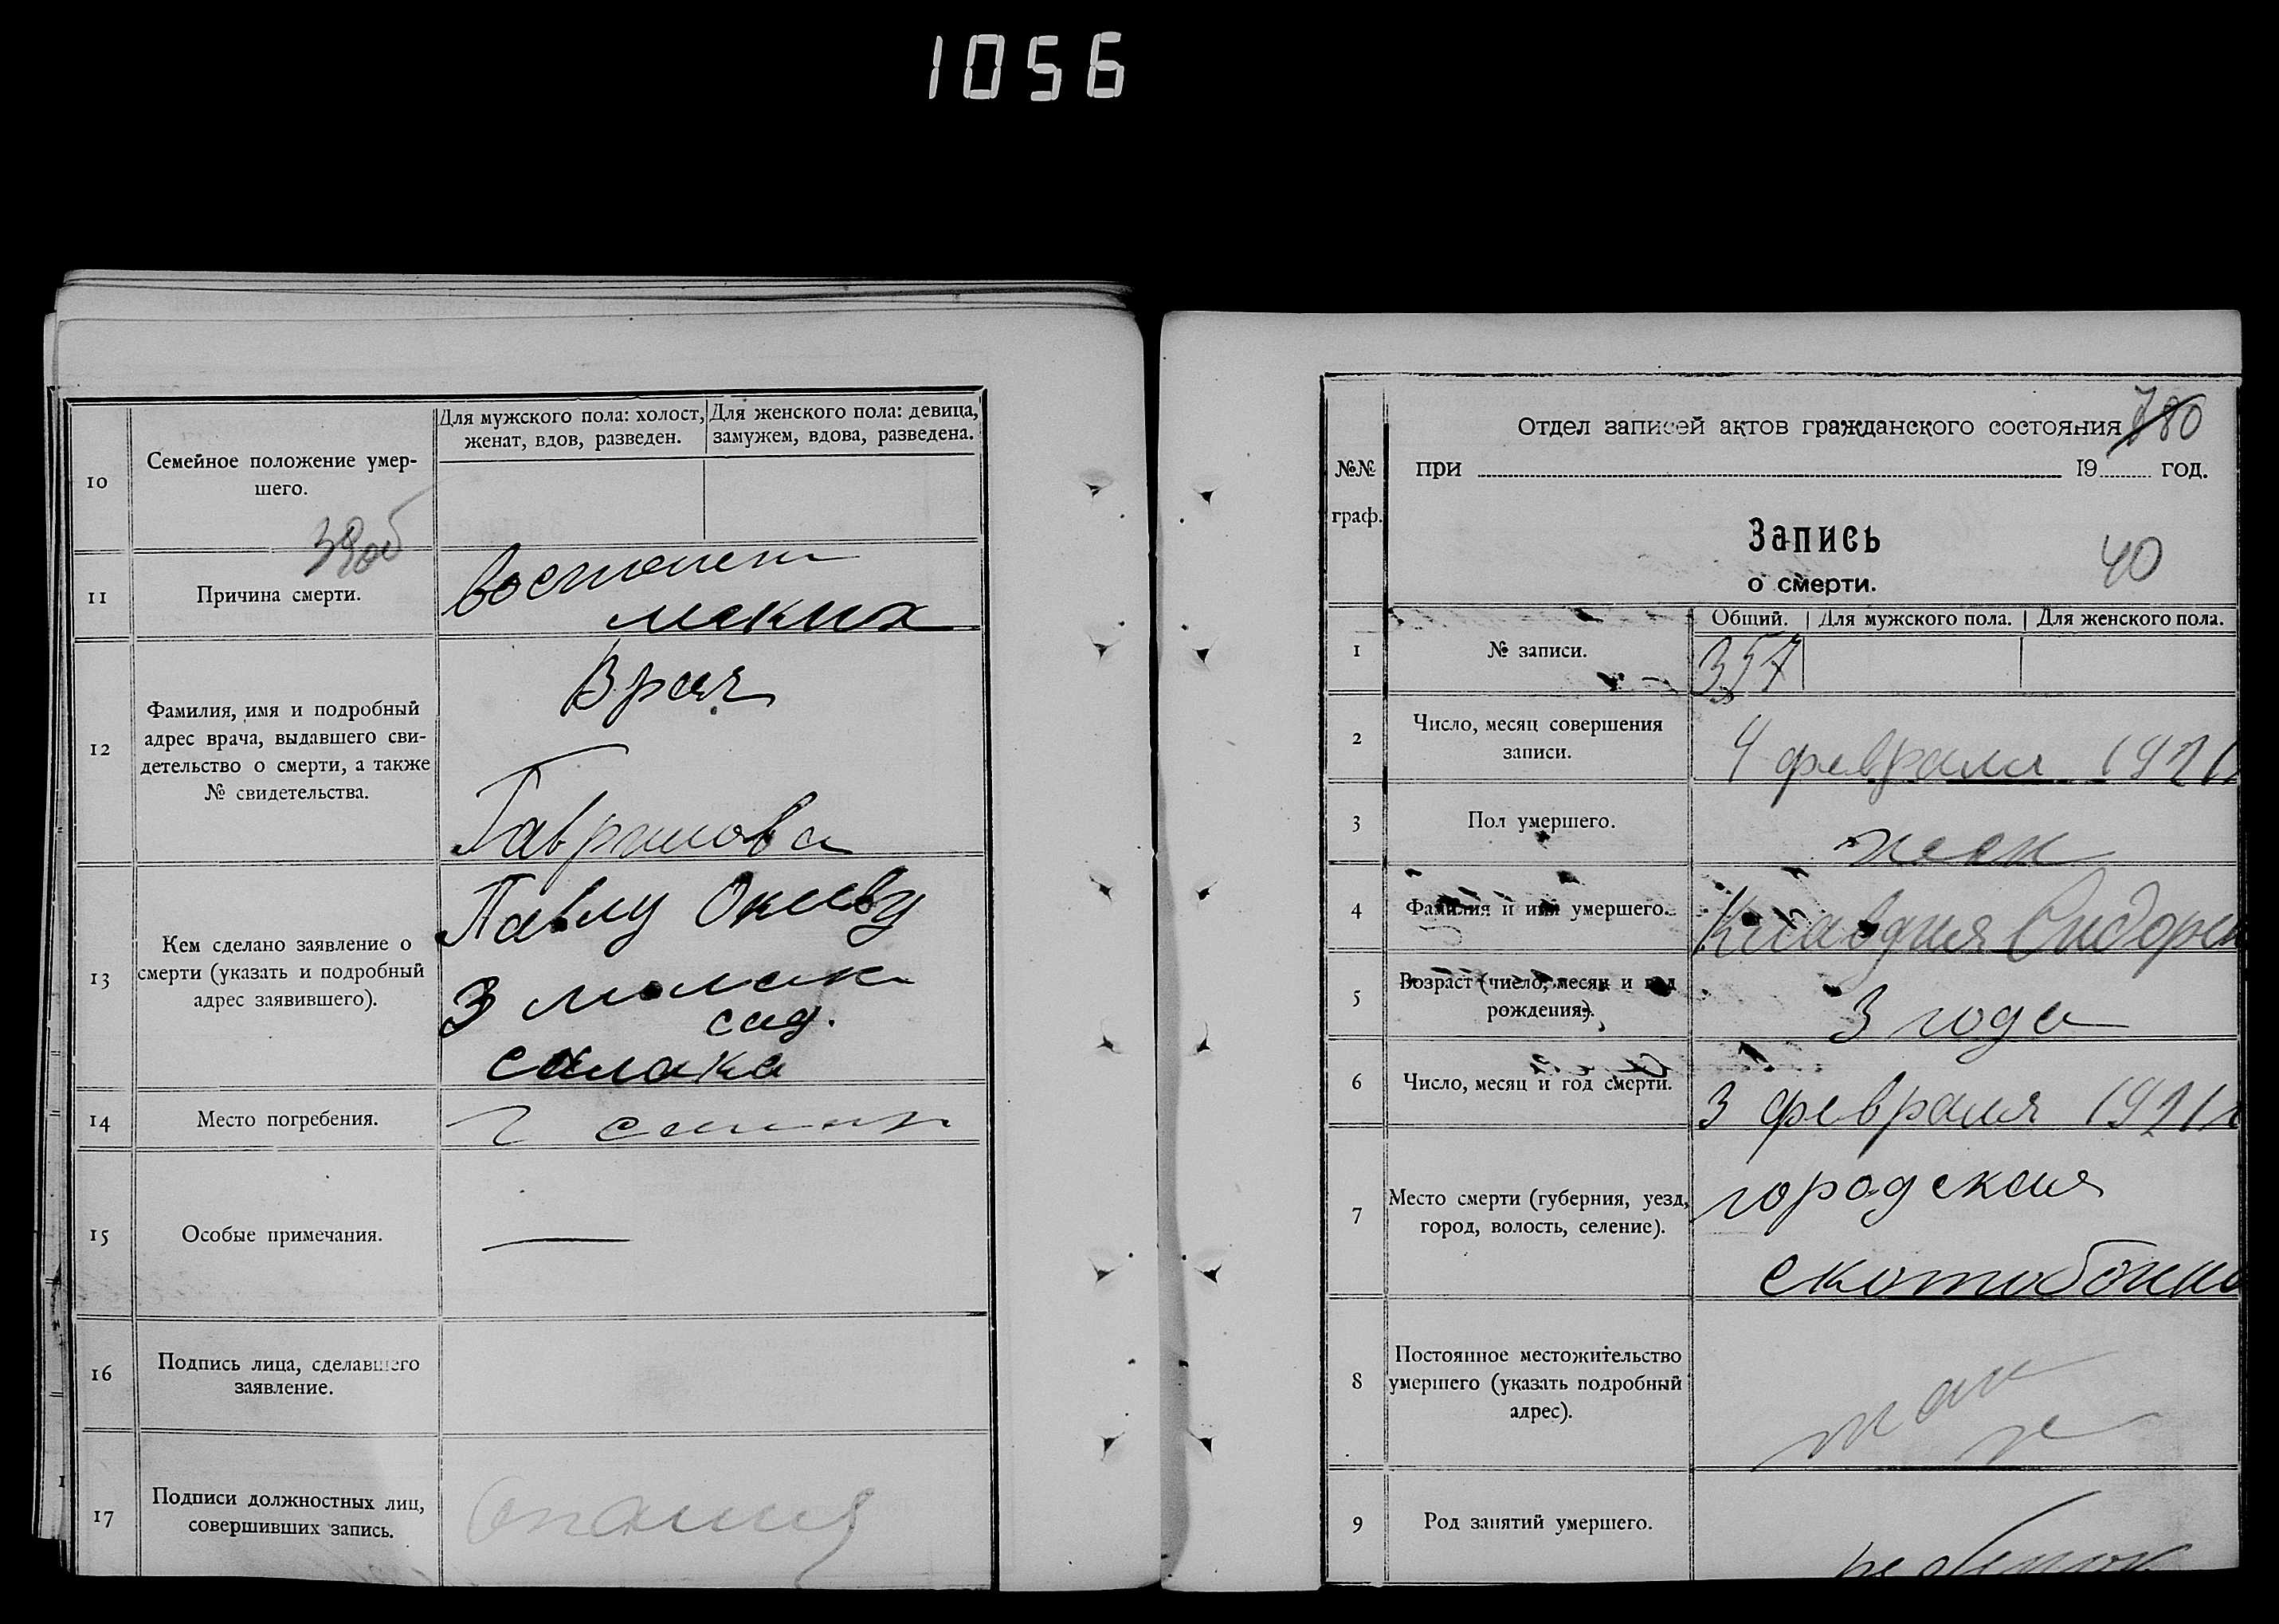 1056
10
Семейное положение умер-
шего.
Для мужского пола: холост,
женат, вдов, разведен.
Для женского пола: девица,
замужем, вдова, разведена.
39об
11
Причина смерти.
Воспален
легких
12
Фамилия, имя и подробный
адрес врача, выдавшего сви-
детельство о смерти, а также
№ свидетельства.
Врач
Гаврилова
13
Кем сделано заявление о
смерти (указать и подробный
адрес заявившего).
Павлу
3
сад.
14
Место погребения.
15
Особые примечания.
—
16
Подпись лица, сделавшего
заявление.
17
Подписи должностных лиц,
совершивших запись.
№№
граф.
Отдел записей актов гражданского состояния
780
при 19 год.
Запись
о смерти.
40
1
№ записи.
Общий.
Для мужского пола.
Для женского пола.
357
2
Число, месяц совершения
записи.
4 февраля 1921
3
Пол умершего.
жен
4
Фамилия и имя умершего.
Клавдия Сидорен
5
Возраст (число, месяц и год
рождения).
3 года
6
Число, месяц и год смерти.
3 февраля 1921
7
Место смерти (губерния, уезд,
город, волость, селение).
городская
скотобойн
8
Постоянное местожительство
умершего (указать подробный
адрес).
там
же
9
Род занятий умершего.
ребенок